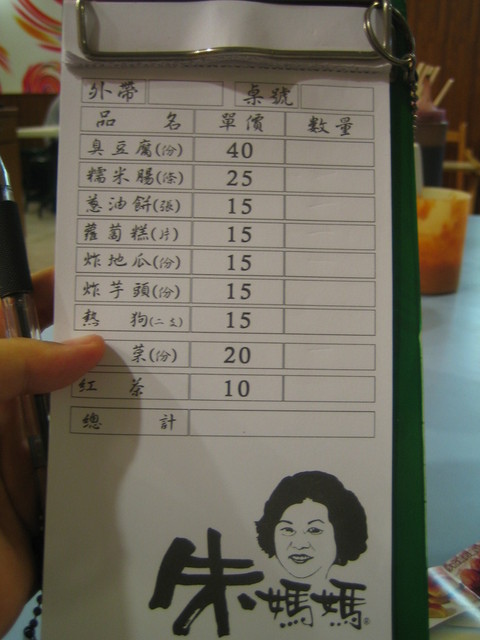 外帶 桌號
品名 單價 數量
臭豆腐(份) 40
糯米腸(條) 25
蔥油餅(張) 15
蘿蔔糕(片) 15
炸地瓜(份) 15
炸芋頭(份) 15
熱狗(二支) 15
菜(份) 20
紅茶 10
總計
朱媽媽®